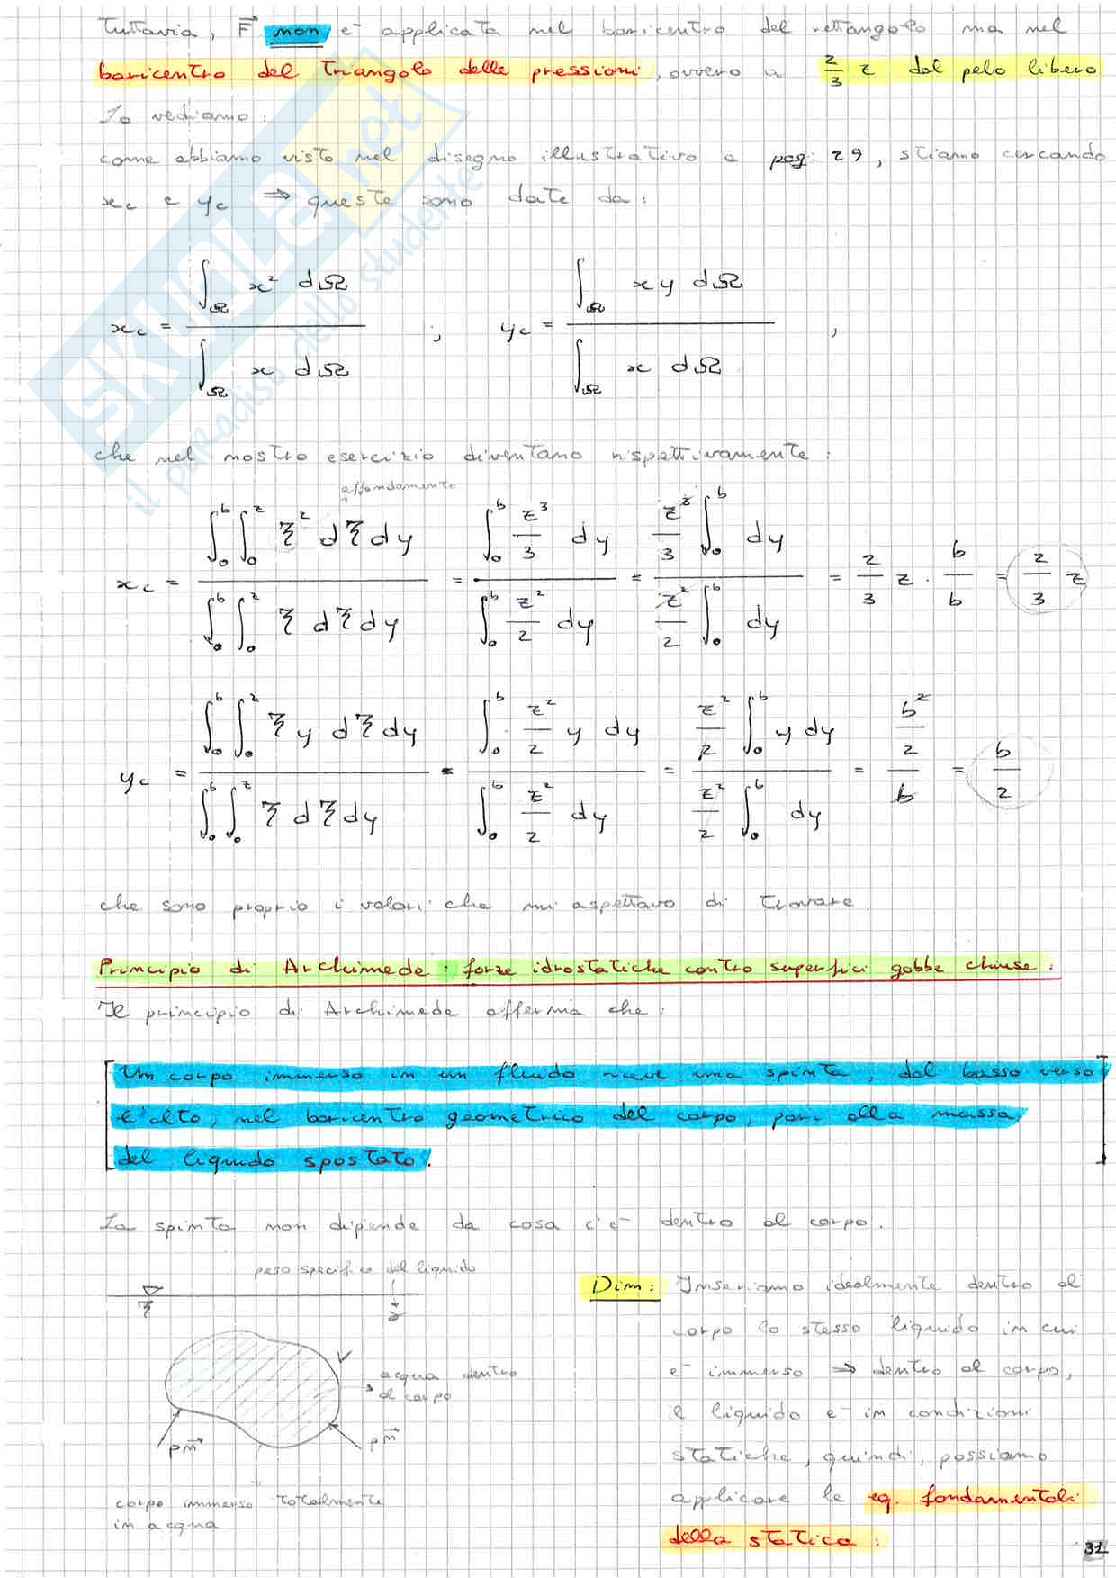 Tuttavia, F⃗ non è applicata nel baricentro del rettangolo ma nel
baricentro del triangolo delle pressioni, ovvero a 2/3 z dal pelo libero
Lo vediamo:
come abbiamo visto nel disegno illustrativo a pag. 29, stiamo cercando
x_c e y_c ⇒ queste sono date da:
x_c = ∫_Ω x² dΩ / ∫_Ω x dΩ ; y_c = ∫_Ω x y dΩ / ∫_Ω x dΩ ,
che nel nostro esercizio diventano rispettivamente:
affondamento
x_c = ∫₀^b ∫₀^z ζ² dζ dy / ∫₀^b ∫₀^z ζ dζ dy = ∫₀^b z³/3 dy / ∫₀^b z²/2 dy = z³/3 ∫₀^b dy / z²/2 ∫₀^b dy = 2/3 z · b/b = 2/3 z
y_c = ∫₀^b ∫₀^z ζ y dζ dy / ∫₀^b ∫₀^z ζ dζ dy = ∫₀^b z²/2 y dy / ∫₀^b z²/2 dy = z²/2 ∫₀^b y dy / z²/2 ∫₀^b dy = b²/2 / b = b/2
che sono proprio i valori che mi aspettavo di trovare.
Principio di Archimede: forze idrostatiche contro superfici gobbe chiuse:
Il principio di Archimede afferma che:
Un corpo immerso in un fluido riceve una spinta, dal basso verso
l'alto, nel baricentro geometrico del corpo, pari alla massa
del liquido spostato.
La spinta non dipende da cosa c'è dentro al corpo.
peso specifico del liquido
ζ
γ
V
acqua dentro
al corpo
p n⃗
p n⃗
corpo immerso totalmente
in acqua
Dim: Inseriamo idealmente dentro al
corpo lo stesso liquido in cui
è immerso ⇒ dentro al corpo,
il liquido è in condizioni
statiche, quindi, possiamo
applicare le eq. fondamentali
della statica:
31
skuola.net
il paradiso dello studente